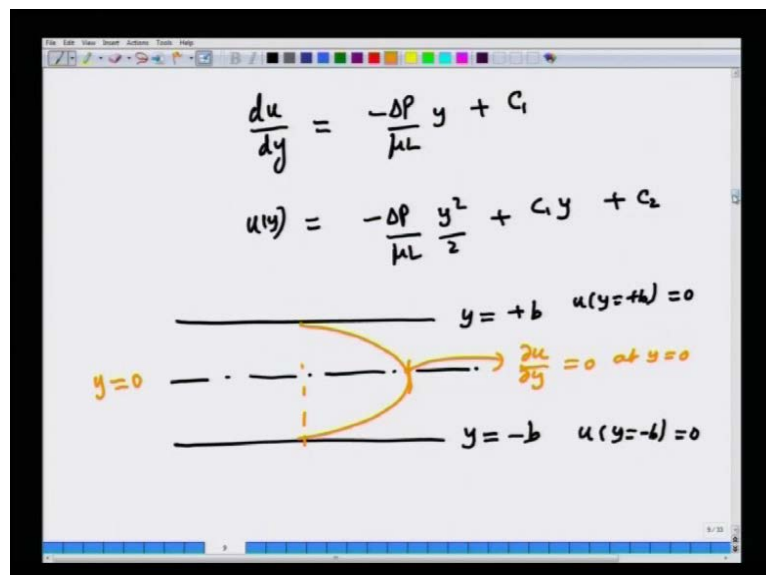 File Edit View Insert Actions Tools Help
du/dy = -ΔP/μL y + C₁
u(y) = -ΔP/μL y²/2 + C₁y + C₂
y = +b u(y=+b) = 0
y = 0 ∂u/∂y = 0 at y = 0
y = -b u(y=-b) = 0
9